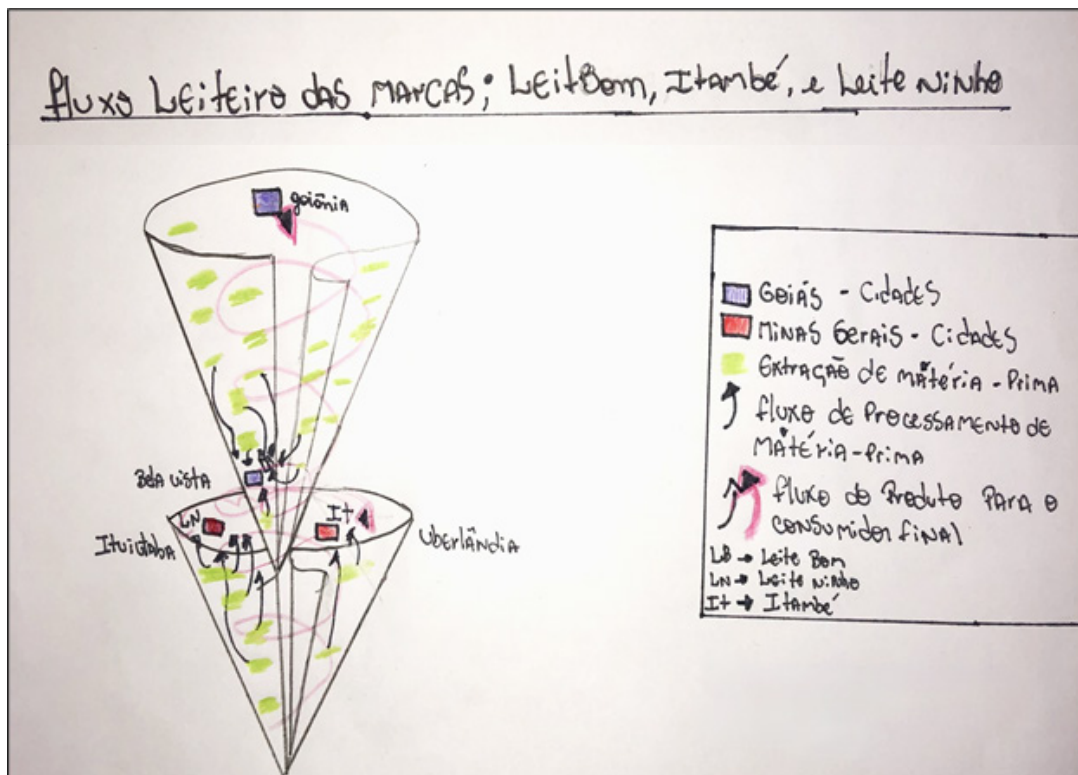 fluxo Leiteiro das marcas; LeitBom, Itambé, e Leite Ninho
goiânia
Bela vista
LN
It
Ituiutaba
Uberlândia
Goiás - Cidades
Minas Gerais - Cidades
Extração de mátéria-Prima
fluxo de Processamento de
mátéria-Prima
fluxo do Produto Para o
consumidor final
LB → Leite Bom
LN → Leite ninho
It → Itambé